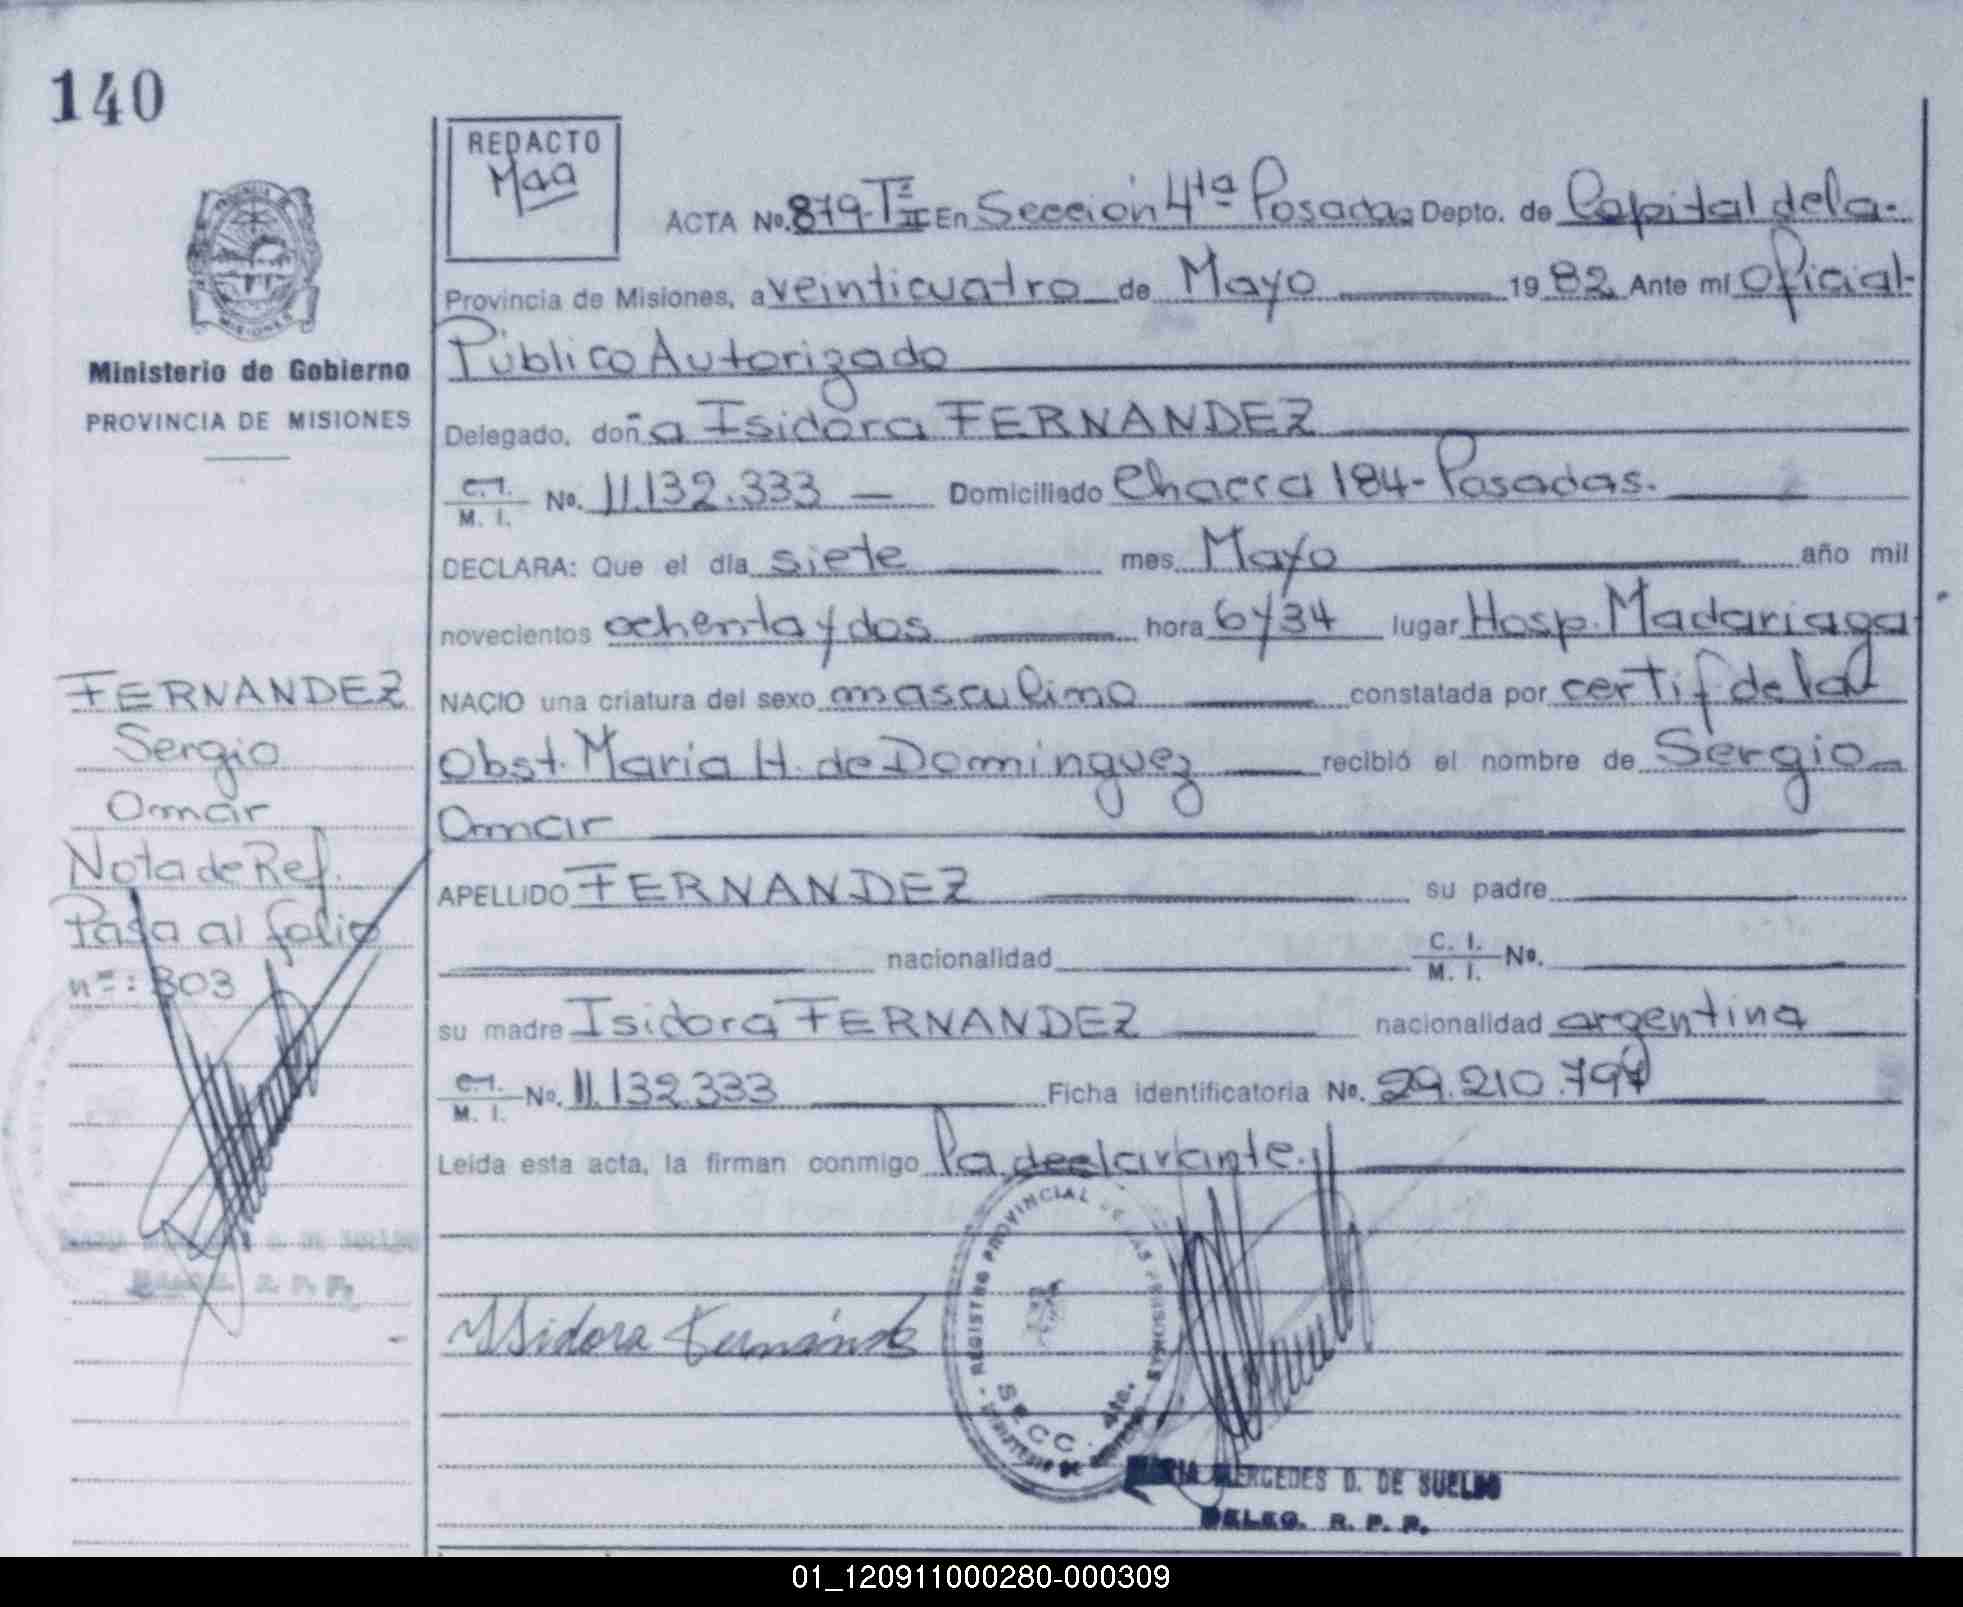 140
REDACTO
Maa
ACTA No. 879-Tº II En Sección 4ta Posadas Depto. de Capital de la-
Provincia de Misiones, a veinticuatro de Mayo 1982 Ante mí Oficial-
Público Autorizado
Delegado, doña Isidora FERNANDEZ
M. I. No. 11.132.333 — Domiciliado Chacra 184- Posadas.
DECLARA: Que el día siete mes Mayo año mil
novecientos ochenta y dos hora 6 y 34 lugar Hosp. Madariaga
NACIO una criatura del sexo masculino constatada por certif de la
Obst. Maria H. de Dominguez recibió el nombre de Sergio
Omar
APELLIDO FERNANDEZ su padre
nacionalidad C. I. M. I. No.
su madre Isidora FERNANDEZ nacionalidad argentina
M. I. No. 11.132.333 Ficha identificatoria No. 29.210.797
Leída esta acta, la firman conmigo la declarante.
Isidora Fernández
REGISTRO PROVINCIAL DE LAS PERSONAS
SECC. 4ta.
MARIA MERCEDES D. DE SUELDO
DELEG. R. P. P.
PROVINCIA
MISIONES
Ministerio de Gobierno
PROVINCIA DE MISIONES
FERNANDEZ
Sergio
Omar
Nota de Ref.
Pasa al folio
nº: 303
D. DE SUELDO
R. P. P.
01_120911000280-000309